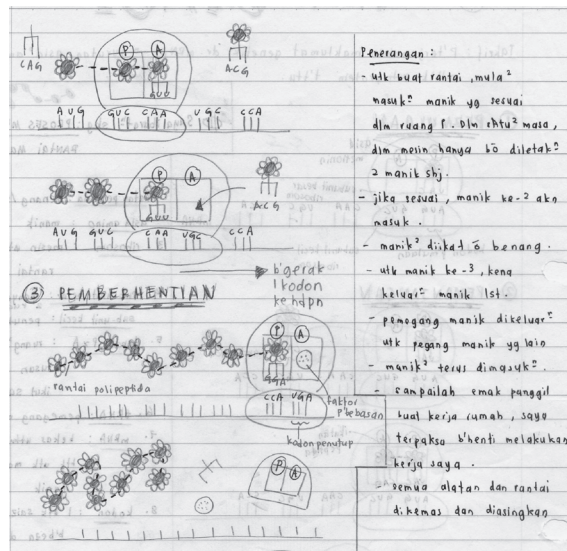 P A
CAG
ACG
GUU
AUG GUC CAA UGC CCA
P A
GUU
ACG
AUG GUC CAA UGC CCA
b'gerak
1 kodon
ke hdpn
③ PEMBERHENTIAN
P A
GGA
rantai polipeptida
CCA UGA
faktor
p'bebasan
kodon penutup
P A
Penerangan :
- utk buat rantai, mula²
masukⁿ manik yg sesuai
dlm ruang P. Dlm satu² masa,
dlm mesin hanya bō diletakⁿ
2 manik shj.
- jika sesuai, manik ke-2 akn
masuk.
- manik² diikat ō benang.
- utk manik ke-3, kena
keluarⁿ manik 1st.
- pemegang manik dikeluarⁿ
utk pegang manik yg lain
- manik² terus dimasukⁿ.
- sampailah emak panggil
buat kerja rumah, saya
terpaksa b'henti melakukan
kerja saya.
- semua alatan dan rantai
dikemas dan diasingkan